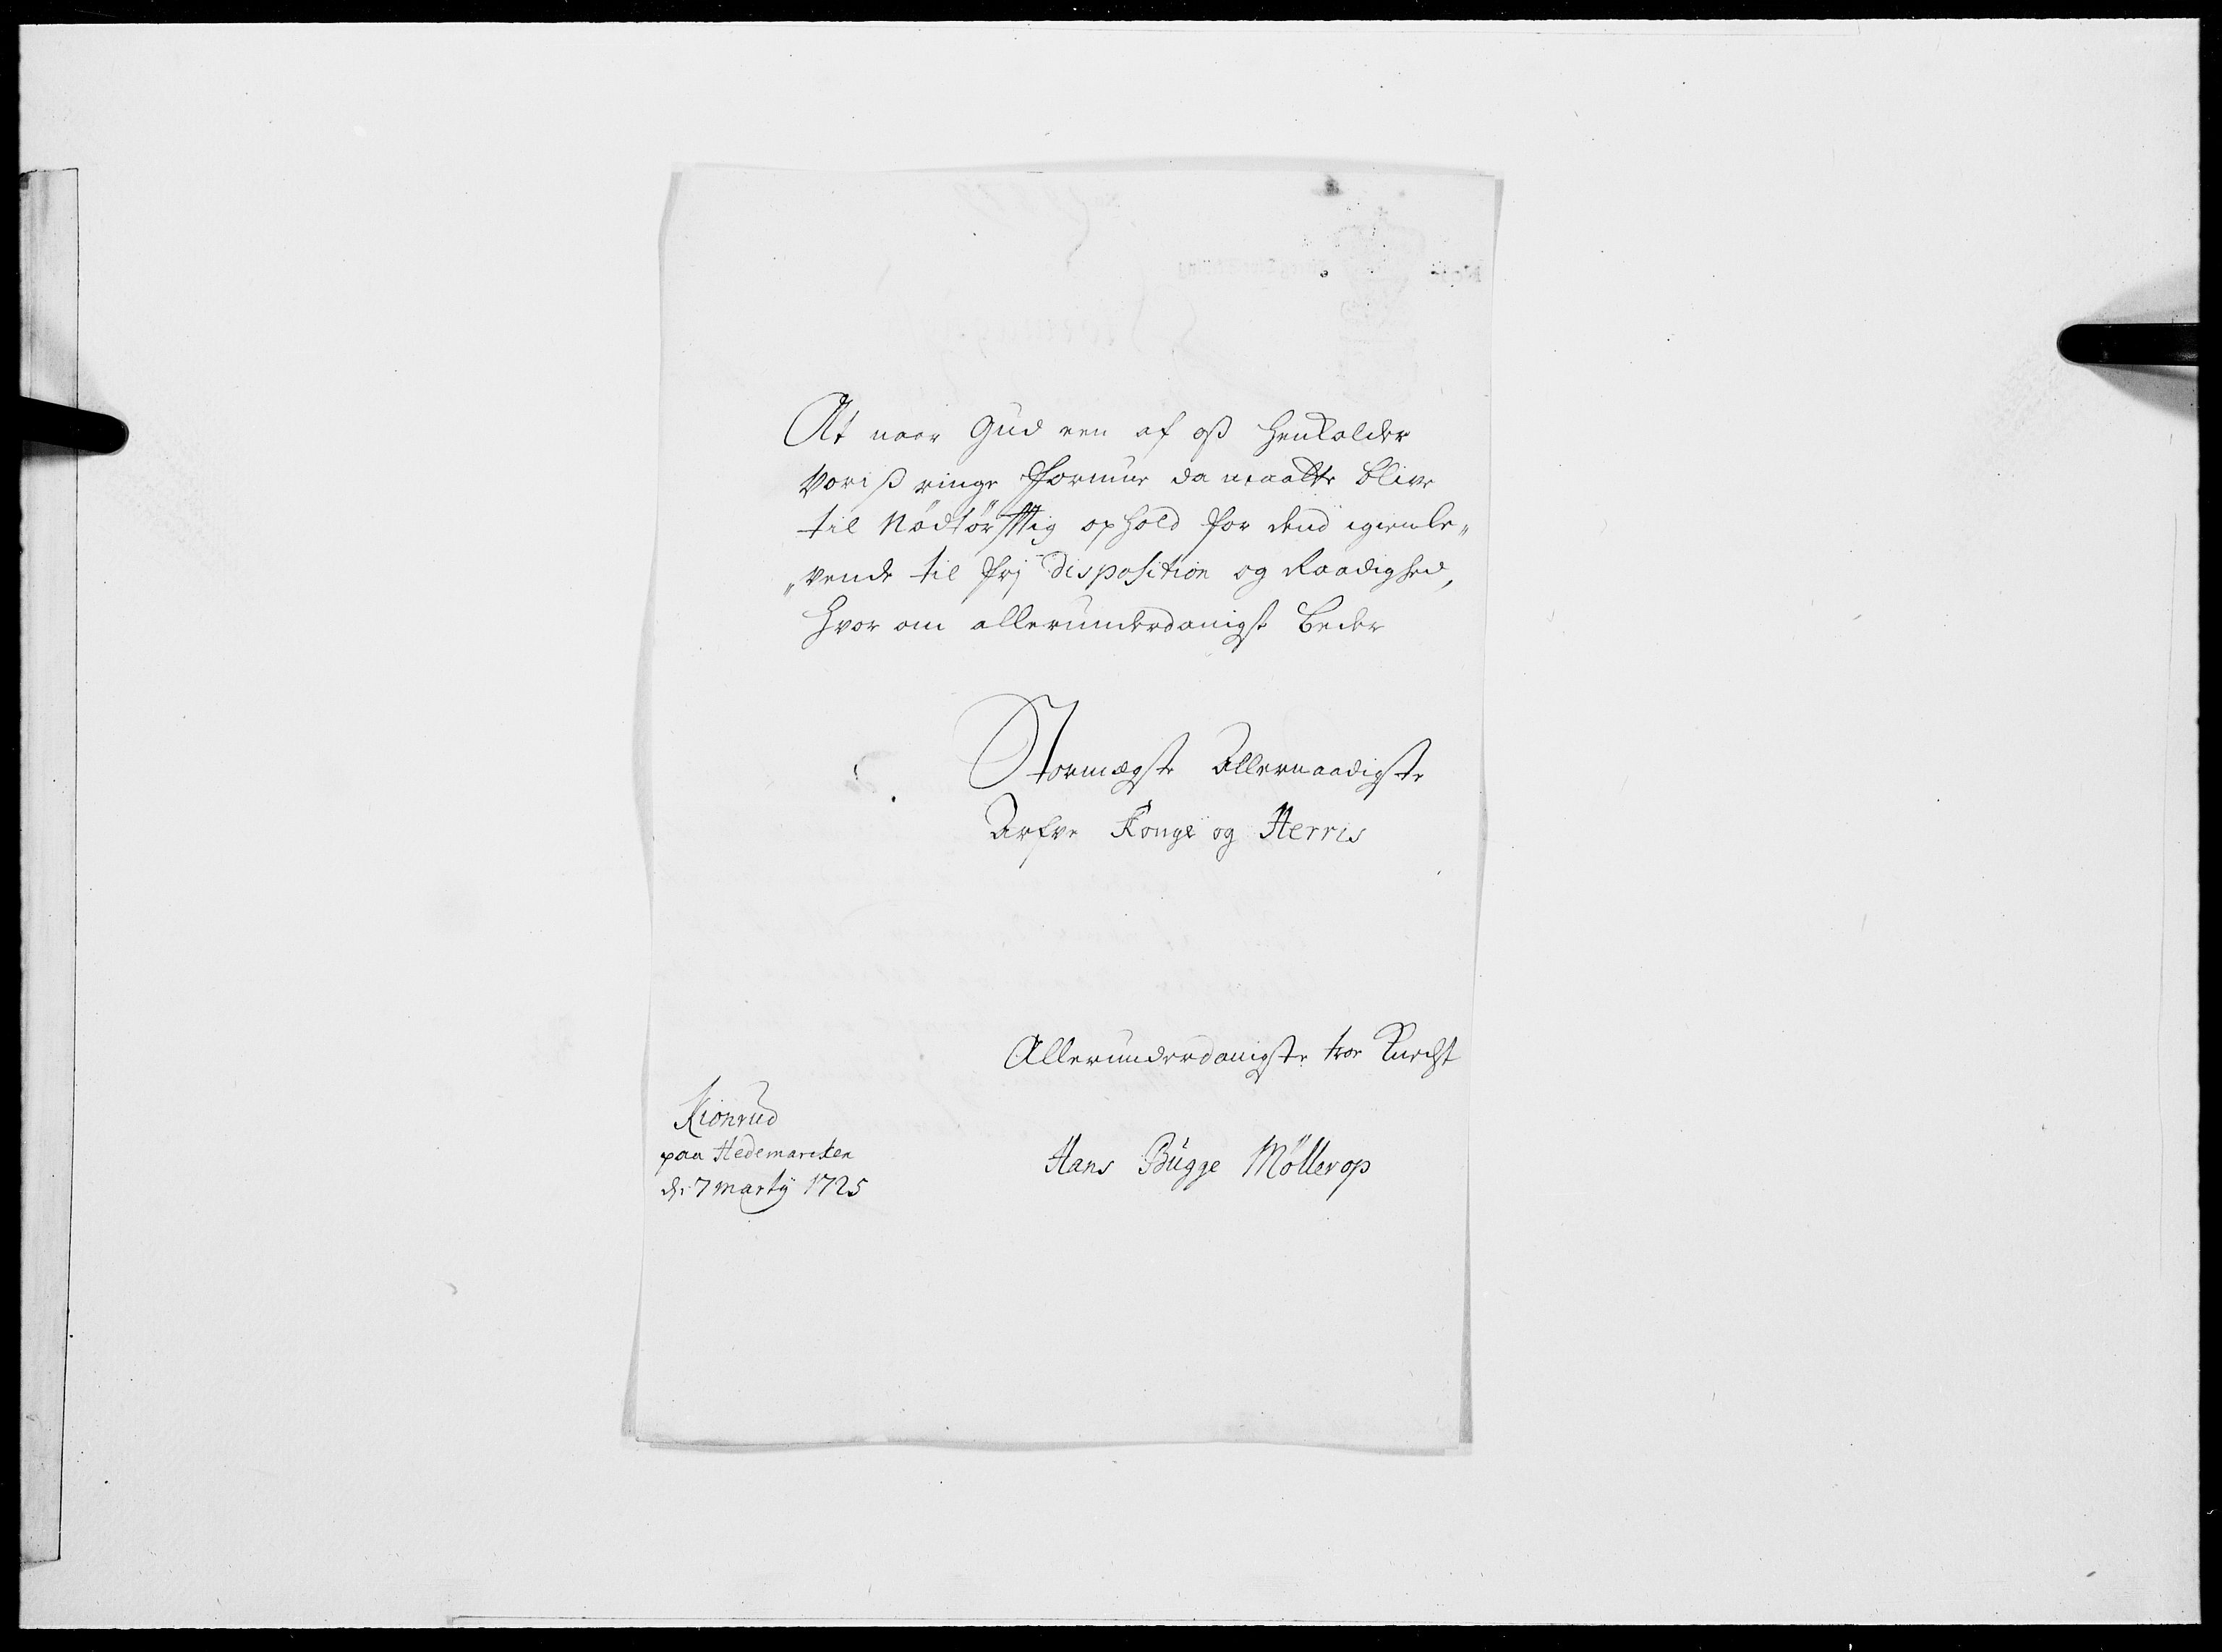 At naar Gud een af oß henkalder
voriß ringe formue da maatte blive
til Nödtörfftig ophold for dend igienle„
„vende til frj disposition og Raadighed,
hvor om allerunderdanigst beder
Stormægste Allernaadigste
Arfve Konge og Herris
Allerunderdanigste troe Knecht
Hans Bügge Möllerop
Kionrud
paa Hedemarcken
d: 7 Martij 1725